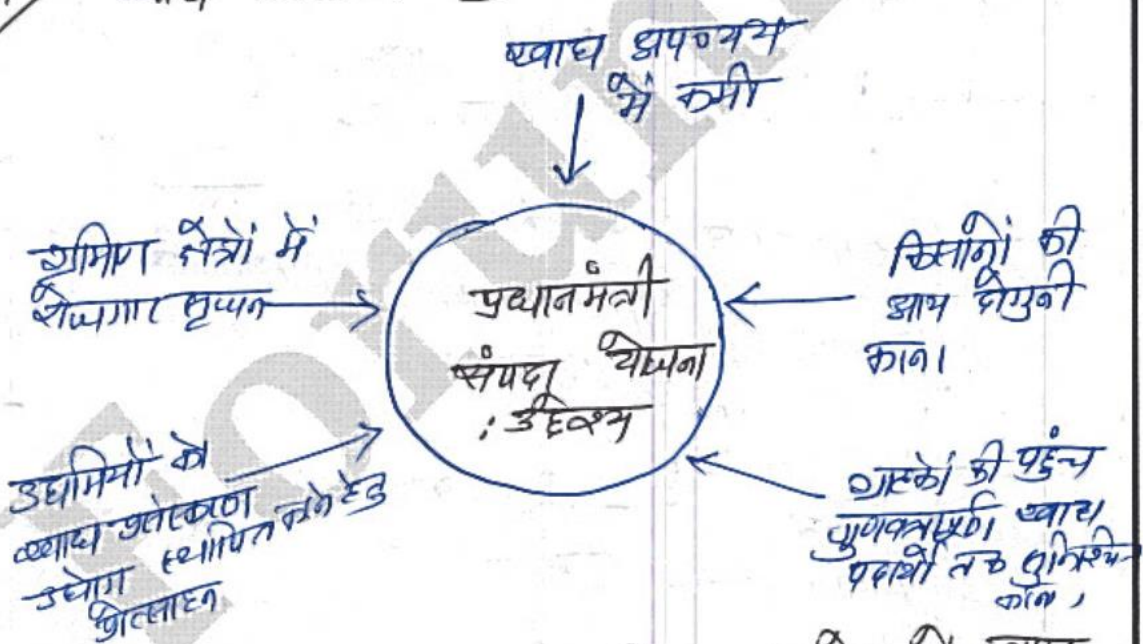 खाद्य अपव्यय
में कमी
ग्रामिण क्षेत्रों में
रोजगार सृजन
प्रधानमंत्री
संपदा योजना
: उद्देश्य
किसानों की
आय दोगुनी
करना।
उद्यमियों को
खाद्य प्रसंस्करण
उद्योग स्थापित करने हेतु
प्रोत्साहन
ग्राहकों की पहुंच
गुणवत्तापूर्ण खाद्य
पदार्थों तक सुनिश्चित
करना।